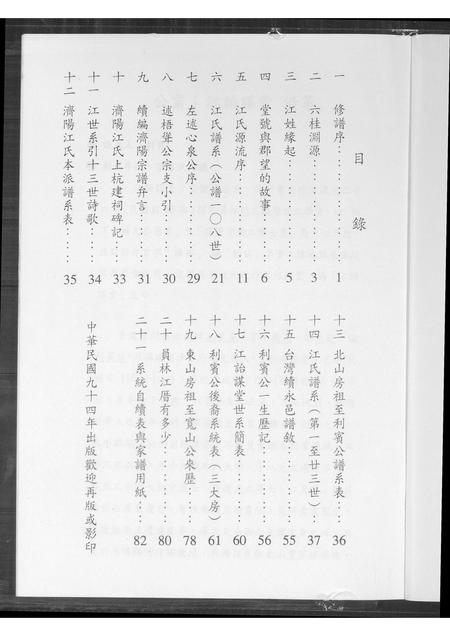 目錄
一 修譜序……………1
二 六桂淵源……………3
三 江姓緣起……………5
四 堂號與郡望的故事……6
五 江氏源流序…………11
六 江氏譜系（公譜一〇八世）21
七 左述心泉公序………29
八 述梧聲公宗支小引…30
九 續編濟陽宗譜弁言…31
十 濟陽江氏上杭建祠碑記…33
十一 江世系引十三世詩歌…34
十二 濟陽江氏本派譜系表…35
十三 北山房祖至利賓公譜系表…36
十四 江氏譜系（第一至廿三世）…37
十五 台灣續永邑譜敘………55
十六 利賓公一生歷記………56
十七 江詒謀堂世系簡表……60
十八 利賓公後裔系統表（三大房）61
十九 東山房祖至寬山公來歷…78
二十 員林江厝有多少………80
二十一 系統自續表與家譜用紙…82
中華民國九十四年出版歡迎再版或影印